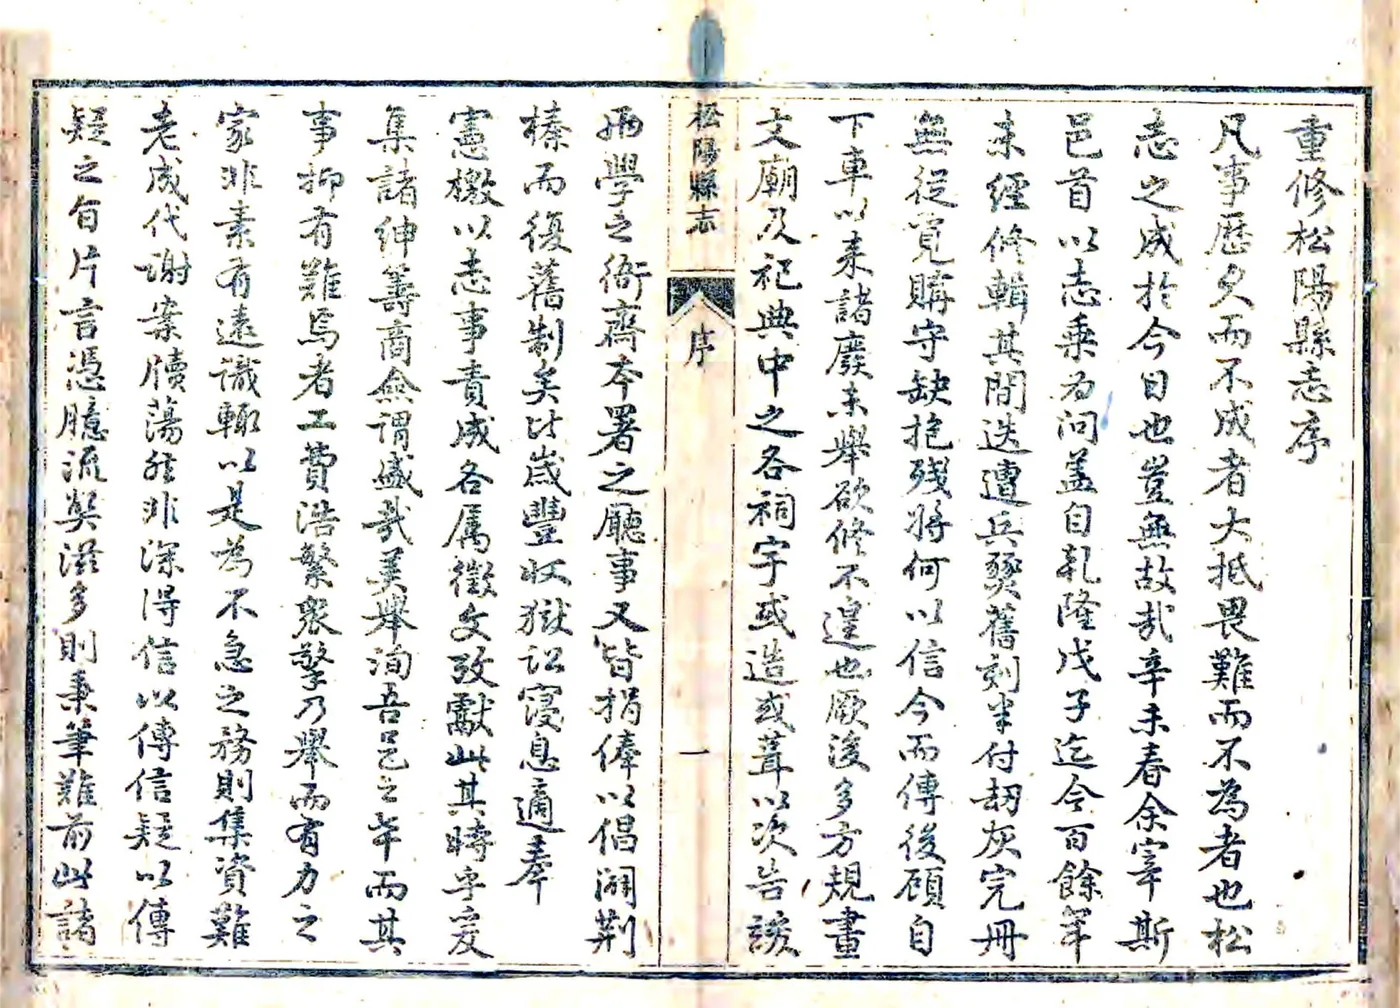 重修松陽縣志序
凡事歷久而不成者大抵畏難而不為者也松
志之成於今日也豈無故哉辛未春余宰斯
邑首以志乘為問盖自乹隆戊子迄今百餘年
未經修輯其間迭遭兵燹舊刻半付刼灰完冊
無從覓購守缺抱殘將何以信今而傳後顧自
下車以来諸廢未舉欲修不遑也厥後多方規畫
文廟及祀典中之各祠宇或造或葺以次告竣
兩學之衙齋本署之廳事又皆捐俸以倡闢荆
榛而復舊制矣比歲豐收獄訟寢息適奉
憲檄以志事責成各屬徵文攷獻此其時乎爰
集諸紳籌商僉謂盛哉美舉洵吾邑之幸而其
事抑有難焉者工費浩繁衆擎乃舉而有力之
家非素有遠識輙以是為不急之務則集資難
老成代謝案牘蕩然非深得信以傳信疑以傳
疑之旨片言憑臆流與滋多則秉筆難前此諸
松陽縣志
序
一